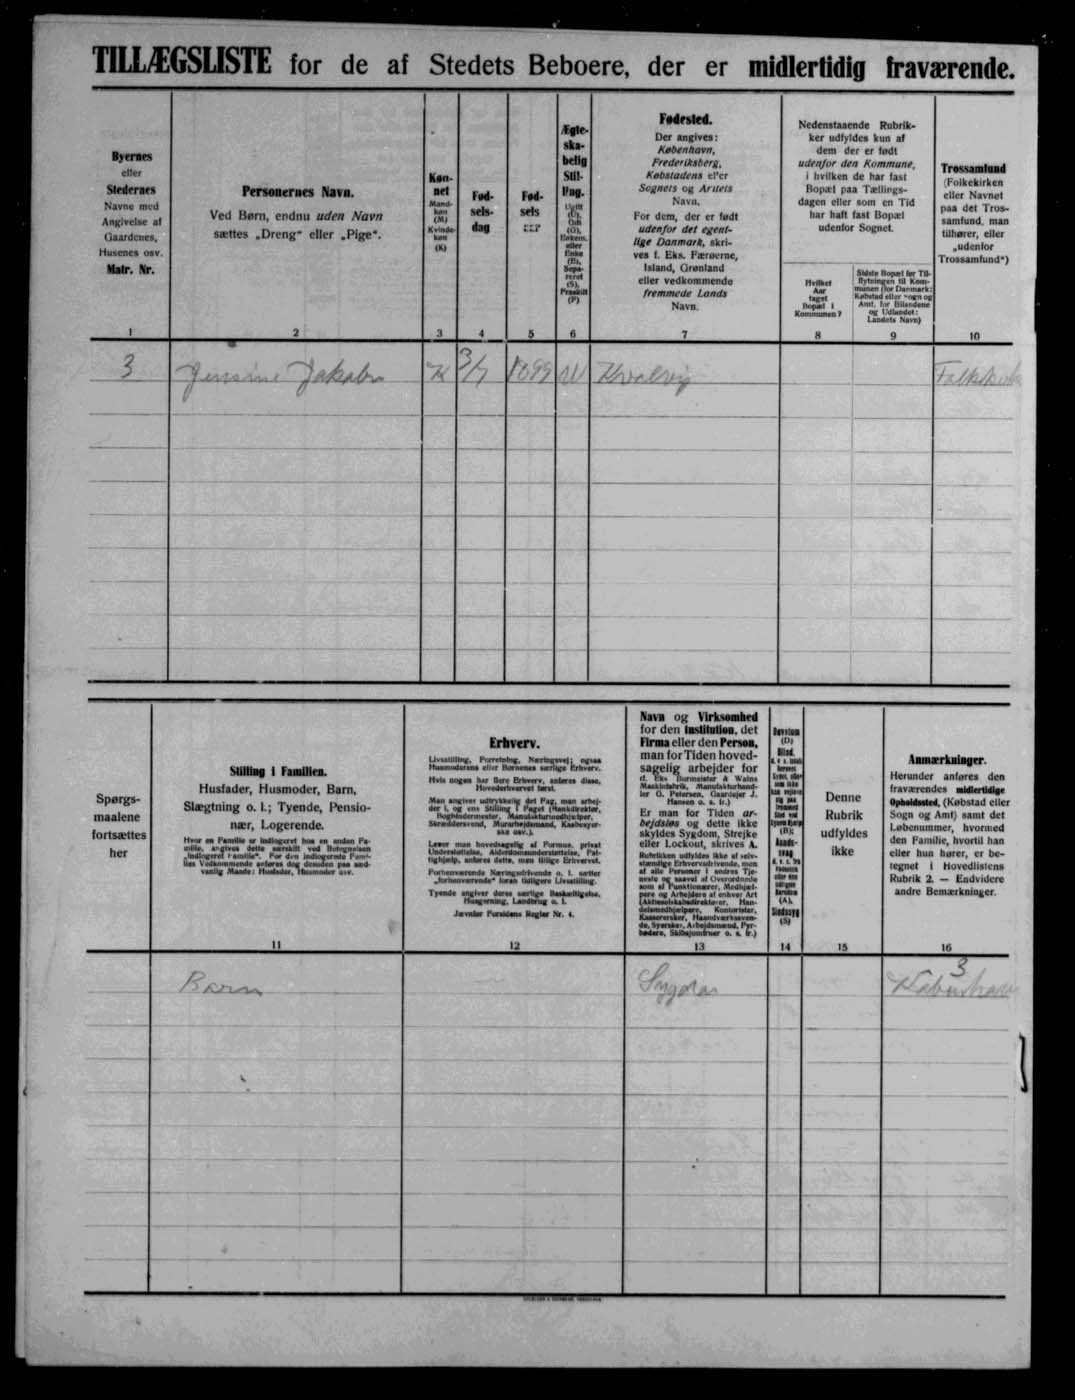 TILLÆGSLISTE for de af Stedets Beboere, der er midlertidig fraværende.
Byernes
eller
Stedernes
Navne med
Angivelse af
Gaardenes,
Husenes osv.
Matr. Nr.
1
Personernes Navn.
Ved Børn, endnu uden Navn
sættes „Dreng" eller „Pige".
2
Køn-
net
Mand-
køn
(M)
Kvinde-
køn
(K)
3
Fød-
sels-
dag
4
Fød-
sels
5
Ægte-
ska-
belig
Stil-
ling.
Ugift
(U),
Gift
(G),
Enkem.
eller
Enke
(E),
Sepa-
reret
(S),
Fraskilt
(F)
6
Fødested.
Der angives:
København,
Frederiksberg,
Købstadens eller
Sognets og Amtets
Navn.
For dem, der er født
udenfor det egent-
lige Danmark, skri-
ves f. Eks. Færøerne,
Island, Grønland
eller vedkommende
fremmede Lands
Navn.
7
Nedenstaaende Rubrik-
ker udfyldes kun af
dem der er født
udenfor den Kommune,
i hvilken de har fast
Bopæl paa Tællings-
dagen eller som en Tid
har haft fast Bopæl
udenfor Sognet.
Hvilket
Aar
taget
Bopæl i
Kommunen?
8
Sidste Bopæl før Til-
flytningen til Kom-
munen (for Danmark:
Købstad eller Sogn og
Amt, for Bilandene
og Udlandet:
Landets Navn)
9
Trossamfund
(Folkekirken
eller Navnet
paa det Tros-
samfund, man
tilhører, eller
„udenfor
Trossamfund")
10
3 Jensine Jakobsen K 3/7 1899 U Kvalvig Folkekirken
Spørgs-
maalene
fortsættes
her
Stilling i Familien.
Husfader, Husmoder, Barn,
Slægtning o. l.; Tyende, Pensio-
nær, Logerende.
Hvor en Familie er indlogeret hos en anden Fa-
milie, angives dette særskilt ved Betegnelsen
„indlogeret Familie". For den indlogerede Fami-
lies Vedkommende anføres dog desuden paa sæd-
vanlig Maade: Husfader, Husmoder osv.
11
Erhverv.
Livsstilling, Forretning, Næringsvej; ogsaa
Husmoderens eller Børnenes særlige Erhverv.
Hvis nogen har flere Erhverv, anføres disse,
Hovederhvervet først.
Man angiver udtrykkelig det Fag, man arbej-
der i, og ens Stilling i Faget (Bankdirektør,
Boghindermester, Manufakturmedhjælper,
Skræddersvend, Murarbejdsmand, Kaabesyer-
ske osv.).
Lever man hovedsagelig af Formue, privat
Understøttelse, Alderdomsunderstøttelse, Fat-
tighjælp, anføres dette, men tillige Erhvervet.
Forhenværende Næringsdrivende o. l. sætter
„forhenværende" foran tidligere Livsstilling.
Tyende angiver deres særlige Beskæftigelse,
Husgerning, Landbrug o. l.
Jævnfør Forsidens Regler Nr. 4.
12
Navn og Virksomhed
for den Institution, det
Firma eller den Person,
man for Tiden hoved-
sagelig arbejder for
(f. Eks. Burmeister & Wains
Maskinfabrik, Manufakturhand-
ler O. Petersen, Gaardejer J.
Hansen o. s. fr.)
Er man for Tiden ar-
bejdsløs og dette ikke
skyldes Sygdom, Strejke
eller Lockout, skrives A.
Rubrikken udfyldes ikke af selv-
stændige Erhvervsdrivende, men
af alle Personer i andres Tje-
neste og saavel af Overordnede
som af Funktionærer, Medhjæl-
pere og Arbejdere af enhver Art
(Aktieselskabsdirektører, Han-
delsmedhjælpere, Kontorister,
Kasserersker, Haandværkssven-
de, Syersker, Arbejdsmænd, Fyr-
bødere, Skibsjomfruer o. s. fr.)
13
Døvstum
(D)
Blind,
(B);
Aands-
svag
(A),
Sindssyg
(S)
14
Denne
Rubrik
udfyldes
ikke
15
Anmærkninger.
Herunder anføres den
fraværendes midlertidige
Opholdssted, (Købstad eller
Sogn og Amt) samt det
Løbenummer, hvormed
den Familie, hvortil han
eller hun hører, er be-
tegnet i Hovedlistens
Rubrik 2. — Endvidere
andre Bemærkninger.
16
3
Barn Sygdom København